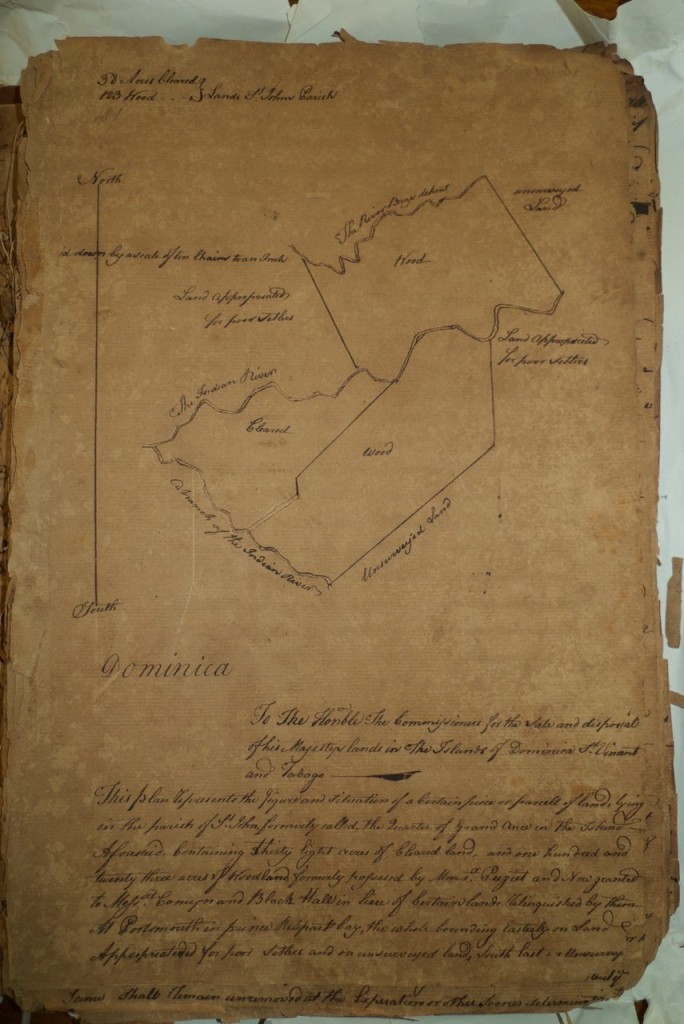 38 Acres Cleared
123 Wood - - Lands St. Johns Parish
North
The River Brye dehaut
unsurveyed
Land
d down by a scale of ten Chains to an Inch
Wood
Land Appropriated
for poor Setlers
Land Appropriated
for poor Setlers
The Indian River
Cleared
Wood
A branch of the Indian River
Unsurveyed Land
South
Dominica
To The Honble The Commissioners for the Sale and disposal
of his Majestys lands in The Islands of Dominica St. Vincent
and Tabago
This plan Represents the figure and Situation of a Certain piece or parcell of land, lying
in the parish of St. John, formerly called, the Quarter of Grand Ance in the Island
Aforesaid, Containing Thirty Eight acres of Cleared land, and one hundred and
twenty three acres of Woodland formerly possessed by Monsr. and Now granted
to Messrs. and Black Hall in lieu of Certain lands Relinquished by them
At Portsmouth in prince Ruperts bay, the whole bounding Easterly on Land
Appropriated for poor Setlers and on unsurveyed land, South East
Same Shall Remain unremoved at the Experation or other Sooner determination